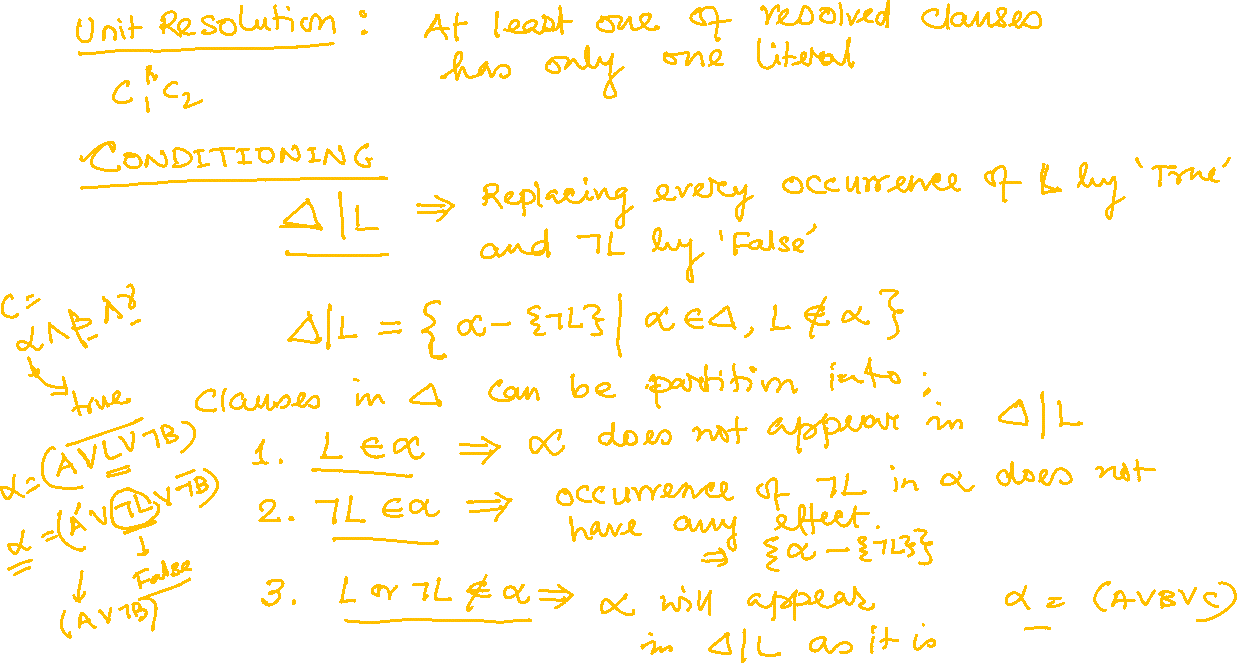 Unit Resolution : At least one of resolved clauses
has only one literal
C₁ ∧ C₂
CONDITIONING
Δ|L ⇒ Replacing every occurrence of L by 'True'
and ¬L by 'False'
C =
α ∧ β ∧ γ
Δ|L = { α - {¬L} | α ∈ Δ, L ∉ α }
true
Clauses in Δ can be partition into :
1. L ∈ α ⇒ α does not appear in Δ|L
α = (A ∨ L ∨ ¬B)
2. ¬L ∈ α ⇒ occurrence of ¬L in α does not
have any effect.
⇒ {α - {¬L}}
α = (A ∨ ¬L ∨ ¬B)
False
(A ∨ ¬B)
3. L or ¬L ∉ α ⇒ α will appear
in Δ|L as it is
α = (A ∨ B ∨ C)